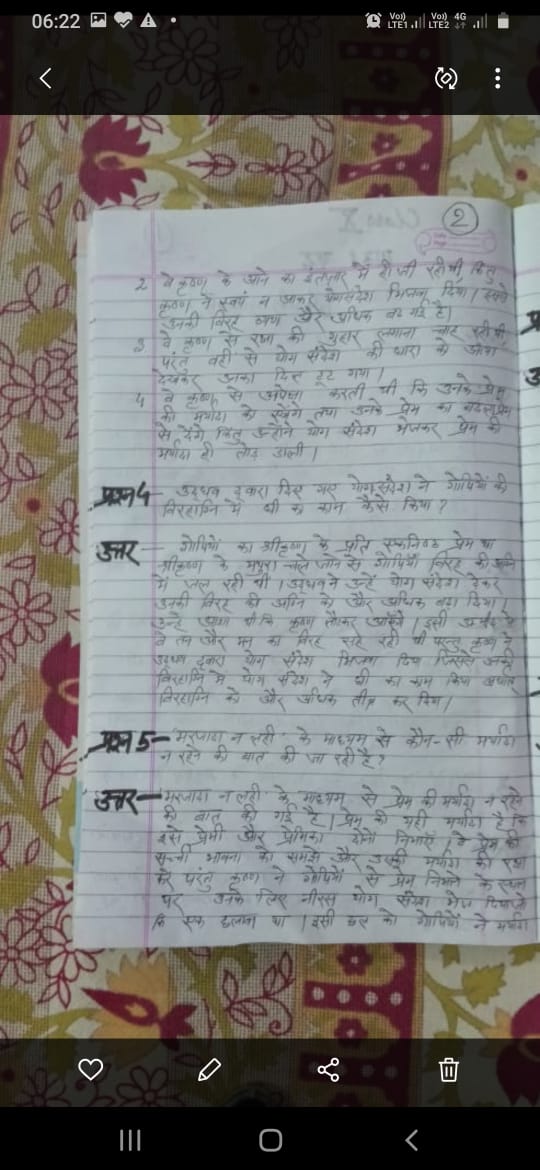 06:22
Vo)) LTE1 Vo)) LTE2 4G
2
2 वे कृष्ण के आने का इंतजार में ही जी रही थी किंतु
कृष्ण ने स्वयं न आकर योगसंदेश भिजवा दिया। इससे
उनकी विरह व्यथा और अधिक बढ़ गई है।
3 वे कृष्ण से रक्षा की गुहार लगाना चाह रही थी,
परंतु वहीं से योग संदेश की धारा को आता
देखकर उनका दिल टूट गया।
4 वे कृष्ण से अपेक्षा करती थी कि उनके प्रेम
की मर्यादा को रखेंगे तथा उनके प्रेम का बदला प्रेम
से देंगे किंतु उन्होंने योग संदेश भेजकर प्रेम की
मर्यादा ही तोड़ डाली।
प्रश्न 4 - उद्धव द्वारा दिए गए योग संदेश ने गोपियों की
विरहाग्नि में घी का काम कैसे किया?
उत्तर - गोपियों का श्रीकृष्ण के प्रति एकनिष्ठ प्रेम था
श्रीकृष्ण के मथुरा चले जाने से गोपियाँ विरह की अग्नि
में जल रही थी। उद्धव ने उन्हें योग संदेश देकर
उनकी विरह की अग्नि को और अधिक बढ़ा दिया।
उन्हें आशा थी कि कृष्ण लौटकर आएंगे। इसी
वे तन और मन का विरह सह रही थी परन्तु कृष्ण ने
उद्धव द्वारा योग संदेश भिजवा दिया जिसने उनकी
विरहाग्नि में योग संदेश ने घी का काम किया अर्थात
विरहाग्नि को और अधिक तीव्र कर दिया।
प्रश्न 5 - 'मरजादा न लही' के माध्यम से कौन-सी मर्यादा
न रहने की बात की जा रही है?
उत्तर - मरजादा न लही के माध्यम से प्रेम की मर्यादा न रहने
की बात की गई है। प्रेम की यही मर्यादा है कि
इसे प्रेमी और प्रेमिका दोनों निभाएं, वे प्रेम की
सच्ची भावना को समझें और उसकी मर्यादा की रक्षा
करें परंतु कृष्ण ने गोपियों से प्रेम निभाने के स्थान
पर उनके लिए नीरस योग संदेश भेज दिया जो
कि एक छलावा था। इसी छल को गोपियों ने मर्यादा